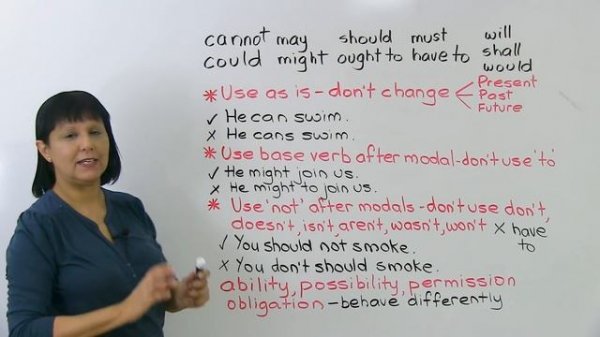 cannot may should must will
could might ought to have to shall
would
* Use as is - don't change < Present
Past
Future
✓ He can swim.
x He cans swim.
* Use base verb after modal - don't use 'to'
✓ He might join us.
x He might to join us.
* Use 'not' after modals - don't use don't,
doesn't, isn't, aren't, wasn't, won't x have to
✓ You should not smoke.
x You don't should smoke.
ability, possibility, permission
obligation - behave differently